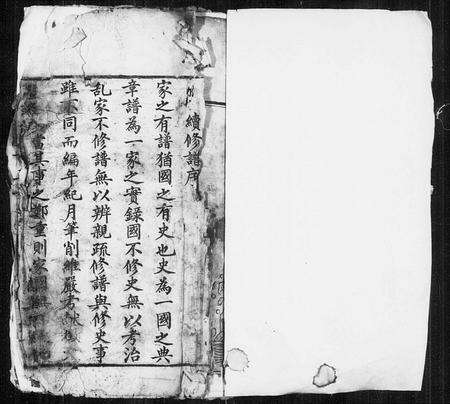 續修譜序
家之有譜猶國之有史也史為一國之典
章譜為一家之實錄國不修史無以考治
乱家不修譜無以辨親疏修譜與修史事
雖不同而編年紀月筆削維嚴考
其事之鄭重則家